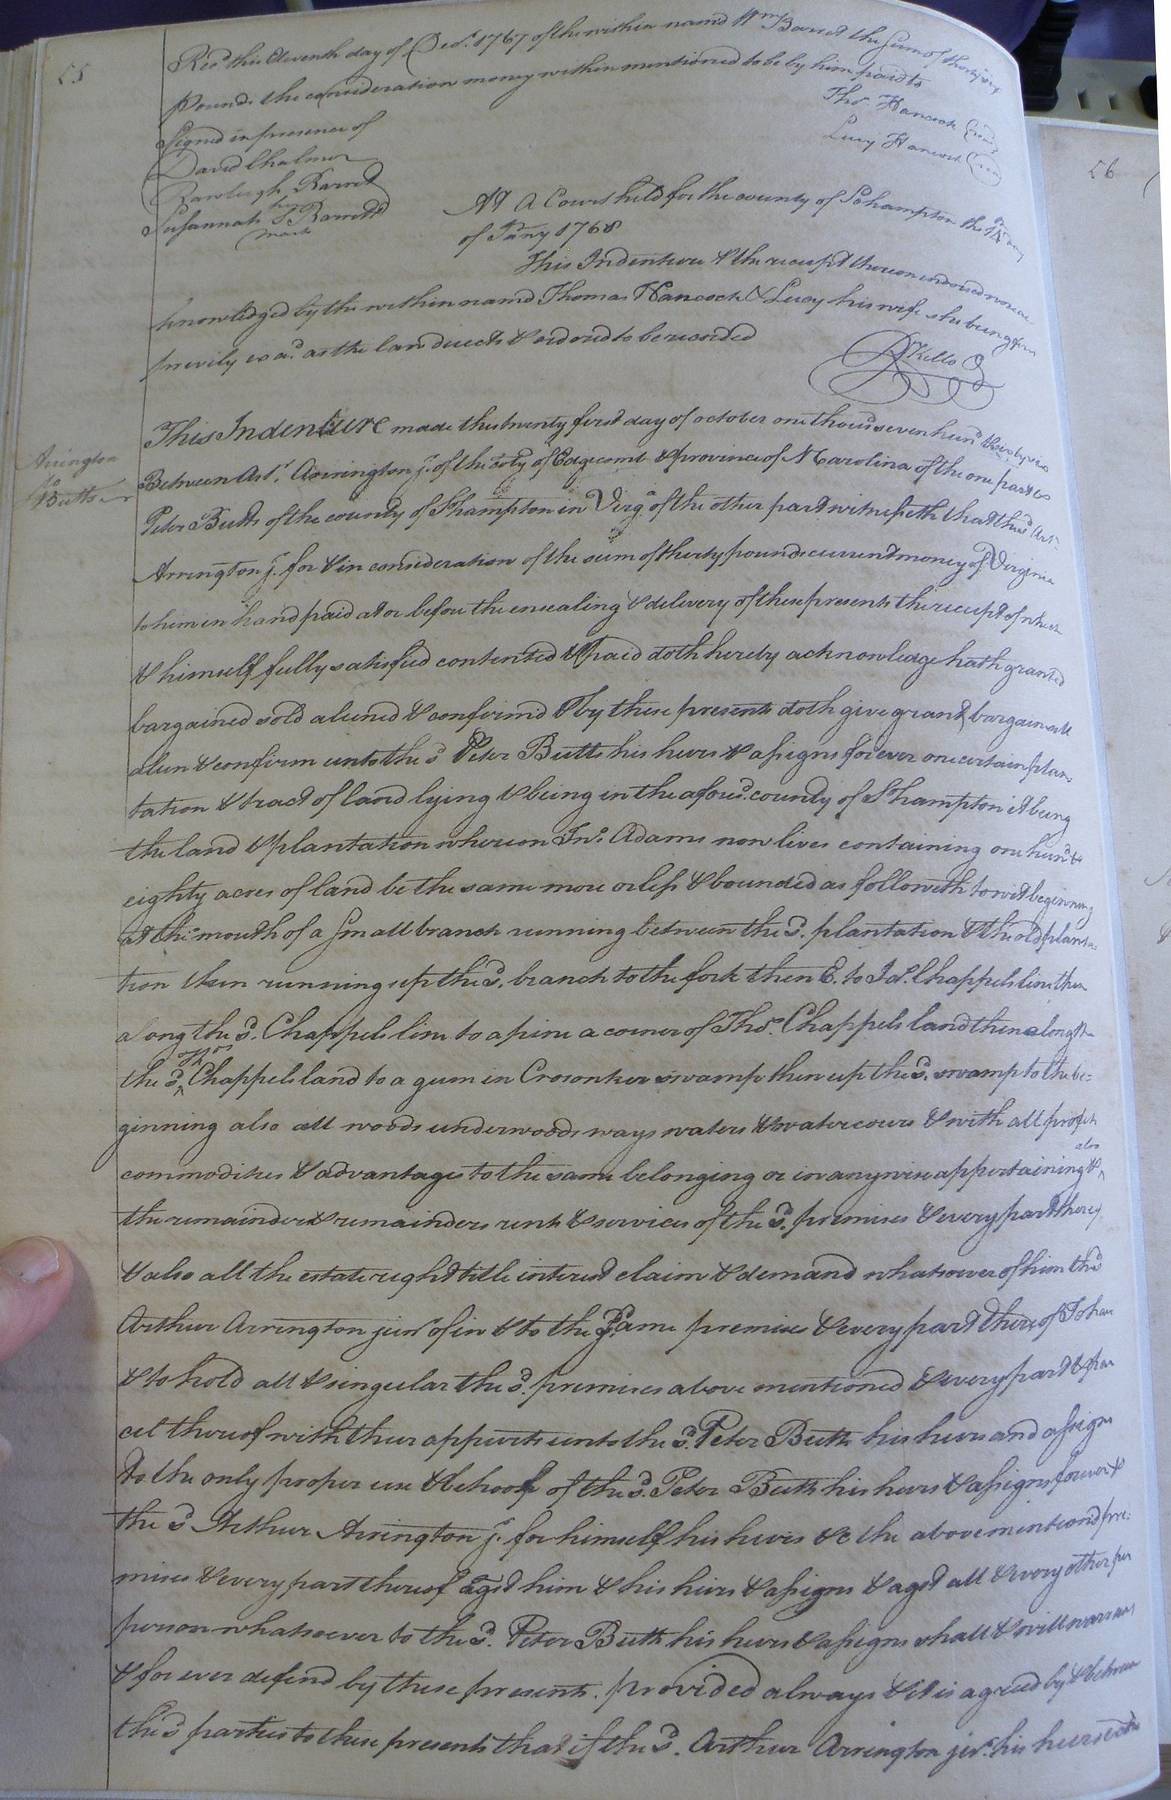 55
Rec.d this Eleventh day of Dec.r 1767 of the within namd Wm Barret the sum of thirty five
Pounds the consideration money within mentioned to be by him paid to
Thos. Hancock
Lucy Hancock
Signed in presence of
David Chalmer
Rawleigh Barret
his
Susannah S Barrett
mark
At A Court held for the county of Sohampton the 14 day
of Jany 1768
This Indenture & the receipt thereon endorsed were ac
knowledged by the within namd Thomas Hancock & Lucy his wife she being first
privily exa.d as the law directs & orderd to be recorded
R Kello
Arrington
to
Butts
This Indenture made the twenty first day of october one thous.d seven hun.d & sixty six
Between Art.r Arrington j.r of the co.ty of Edgecomb & province of N Carolina of the one part &
Peter Butts of the county of S.hampton in Virg.a of the other part witnesseth that the s.d Art.r
Arrington j.r for & in consideration of the sum of thirty pounds current money of Virginia
to him in hand paid at or before the ensealing & delivery of these presents the receipt of which
& himself fully satisfied contented & paid doth hereby acknowledge hath granted
bargained sold aliened & confirmd & by these presents doth give grant bargain sell
alien & confirm unto the s.d Peter Butts his heirs & assigns for ever one certain plan
tation & tract of land lying & being in the afores.d county of S.hampton it being
the land & plantation whereon Jn.o Adams now lives containing one hun.d &
eighty acres of land be the same more or less & bounded as followeth to wit beginning
at the mouth of a small branch running between the s.d plantation & the old planta
tion then running up the s.d branch to the fork then E. to Ja.s Chappels line then
along the s.d Chappels line to a pine a corner of Tho.s Chappels land then along st
the s.d ^Thos Chappels land to a gum in Crosonker swamp then up the s.d swamp to the be=
ginning also all woods underwoods ways waters & watercours & with all profits
commodities & advantages to the same belonging or in anywise appertaining & ^also
the remainder & remainders rents & services of the s.d premises & every part thereof
& also all the estate right title interest claim & demand whatsoever of him the s.d
Arthur Arrington jun.r of in & to the same premises & every part thereof To have
& to hold all & singular the s.d premises above mentioned & every part & par
cel thereof with their appurts unto the s.d Peter Butts his heirs and assigns
to the only proper use & behoof of the s.d Peter Butts his heirs & assigns forever &
the s.d Arthur Arrington j.r for himself his heirs &c the abovementiond pre=
mises & every part thereof ag.st him & his heirs & assigns & ag.st all & every other per
person whatsoever to the s.d Peter Butts his heirs & assigns shall & will warrant
& for ever defend by these presents. provided always & it is agreed by & between
the s.d parties to these presents that if the s.d Arthur Arrington jr. his heirs
56